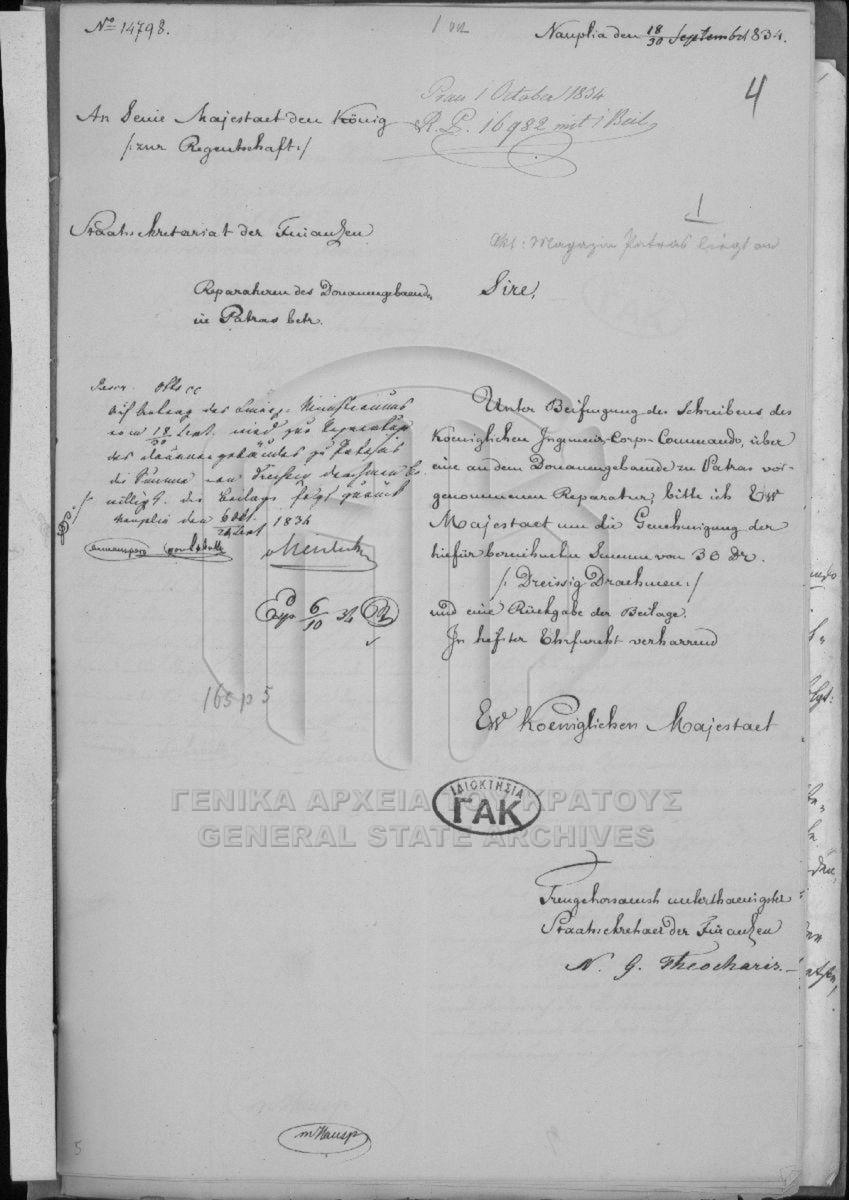 No 14798.
Nauplia den 18/30 September 1834.
4
Praes 1 October 1834
R. L. 16982 mit 1 Beil
An Seine Majestaet den König
/: zur Regentschaft :/
Staatssekretariat der Finanzen
1
Akt: Magazin Patras liegt an
Reparaturen des Douanengebaeudes
in Patras betr.
Sire,
Auf Antrag des Ministeriums
vom 18 Sept. wird zur Reparatur
des Douanengebäudes zu Patras
die Summe von Dreissig Drachmen be-
willigt. die Beilage folgt zurück
Nauplia den 6 Okt. 1834
24 Sept
Exp 6/10 34
165 p 5
Unter Beifuegung des Schreibens des
Koeniglichen Ingenieur-Corps-Commando, über
eine an dem Douanengebaeude zu Patras vor-
genommenen Reparatur, bitte ich Ew
Majestaet um die Genehmigung der
hiefür berechneten Summe von 30 Dr.
/: Dreissig Drachmen :/
und eine Rückgabe der Beilage.
In tiefster Ehrfurcht verharrend
Ew Koeniglichen Majestaet
ΙΔΙΟΚΤΗΣΙΑ
ΓΑΚ
ΓΕΝΙΚΑ ΑΡΧΕΙΑ ΤΟΥ ΚΡΑΤΟΥΣ
GENERAL STATE ARCHIVES
Treugehorsamst unterthaenigster
Staatssekretaer der Finanzen
N. G. Theocharis
5